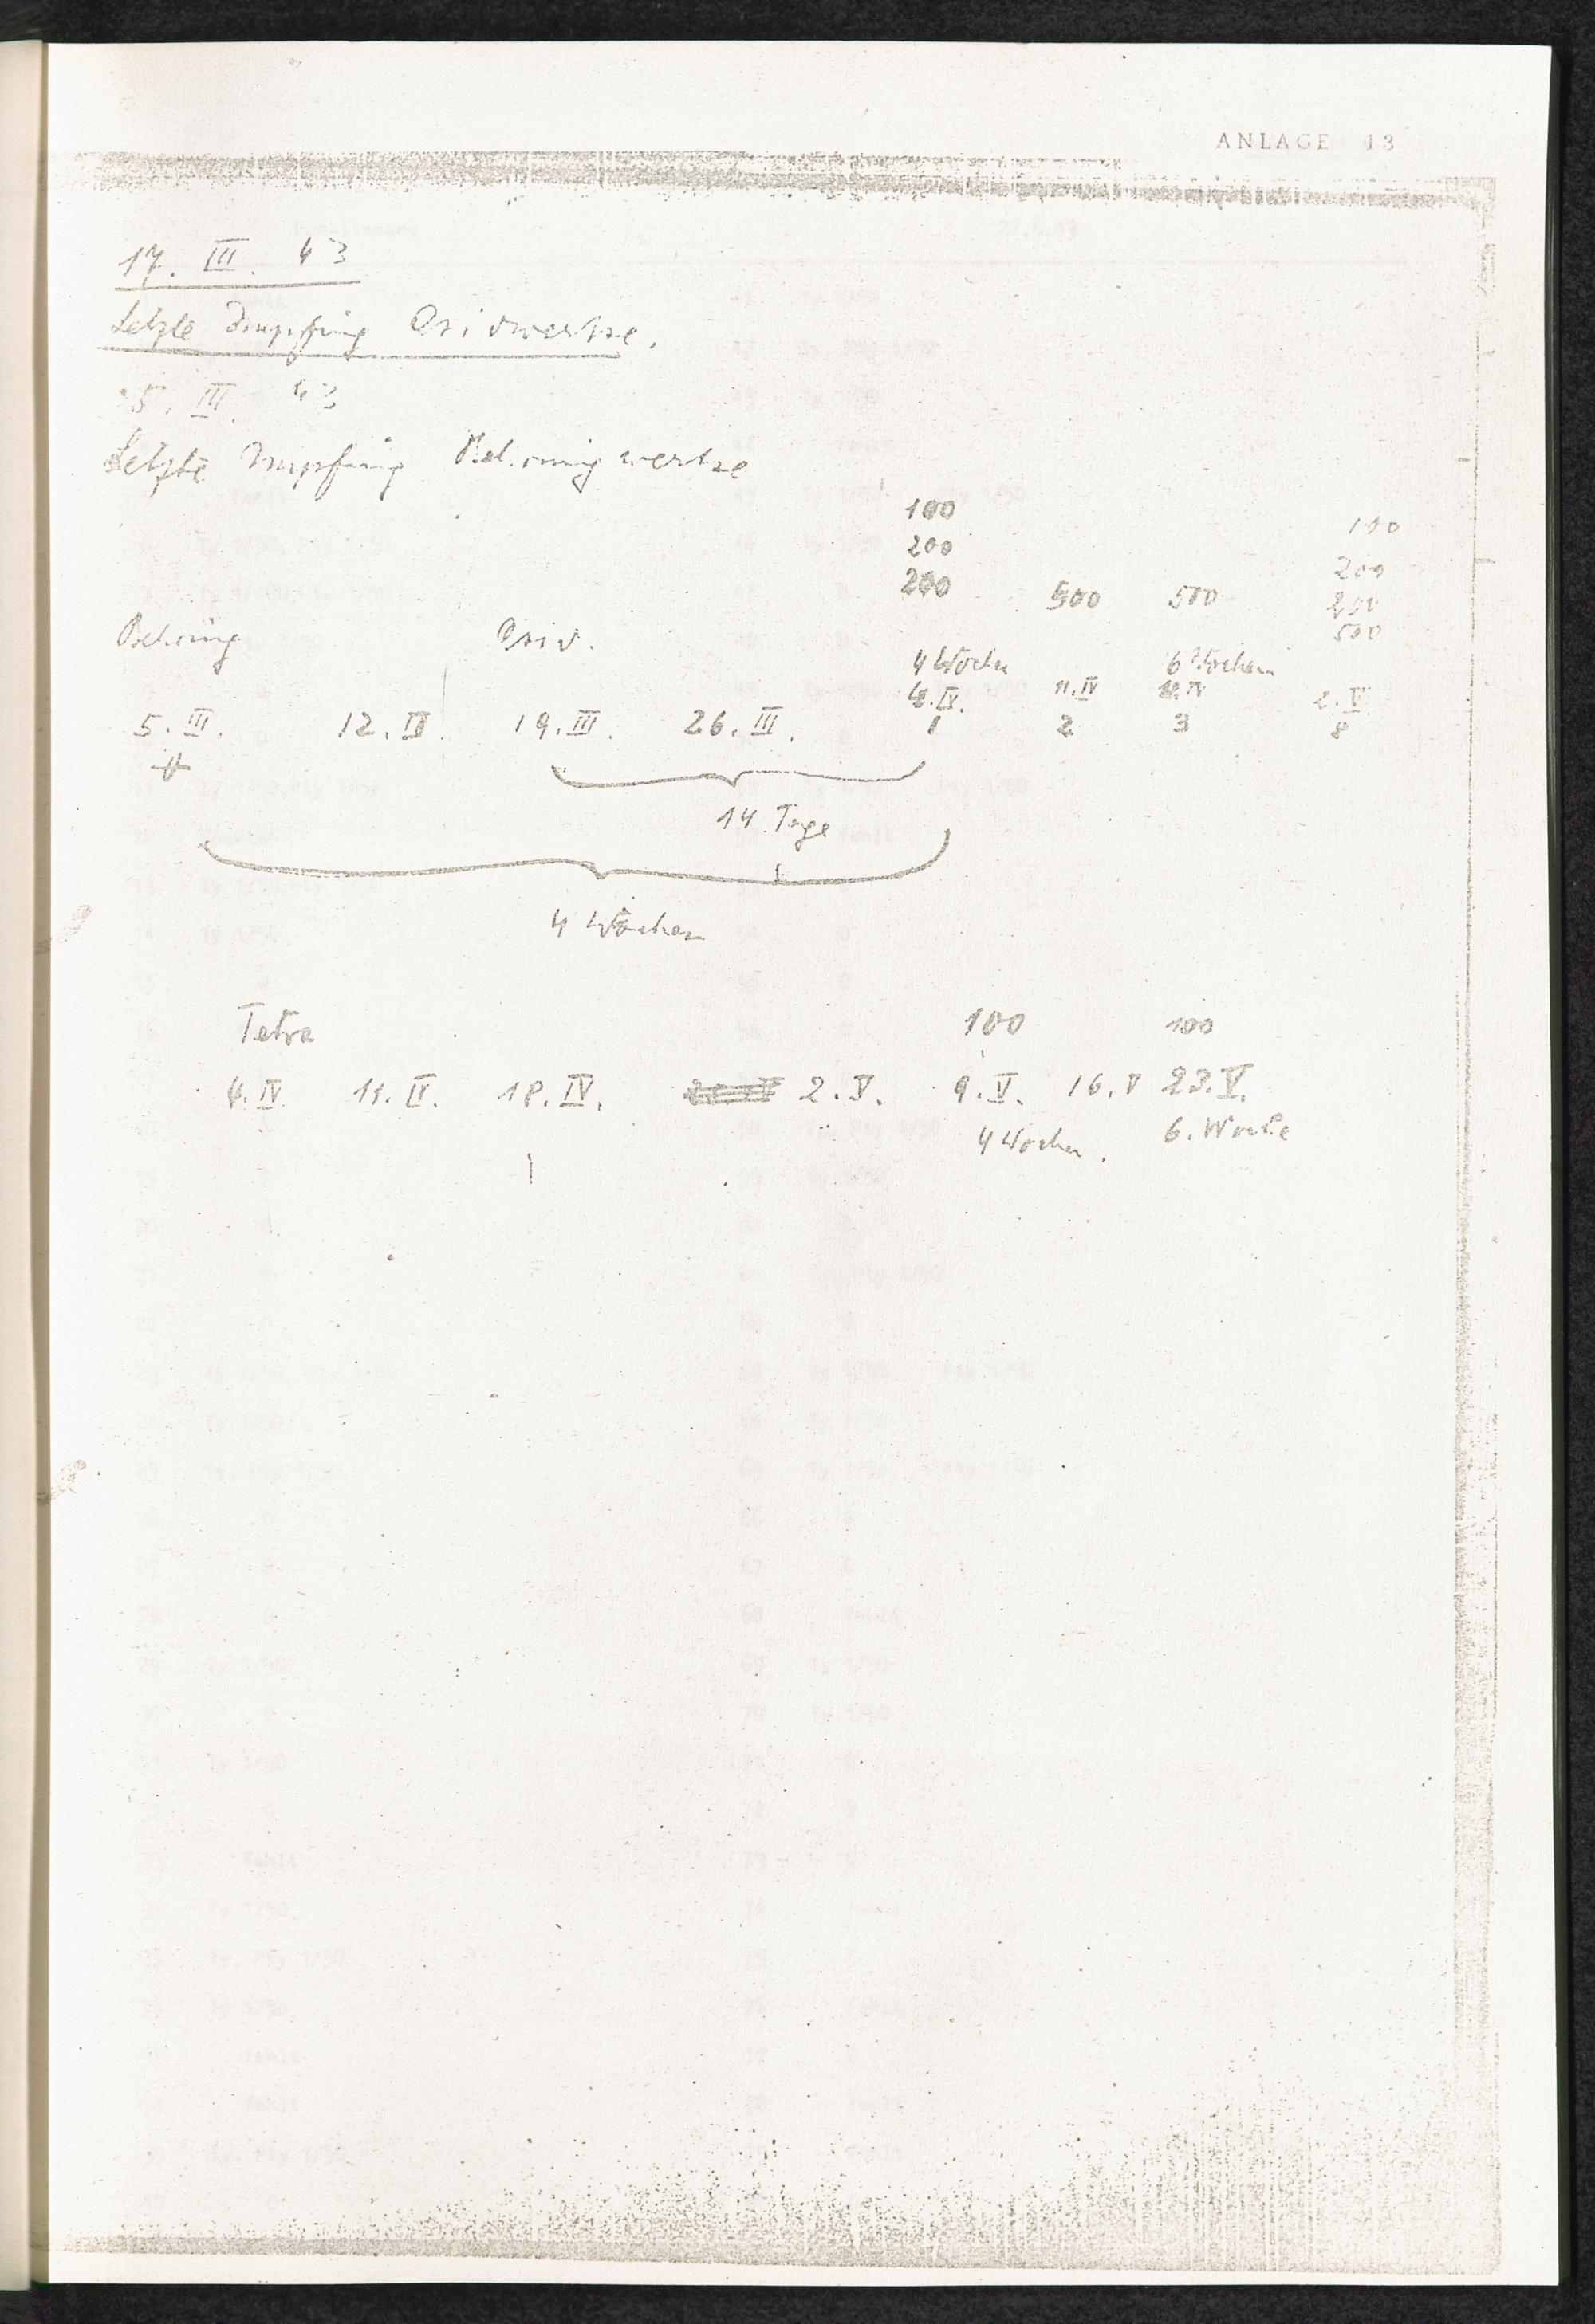 ANLAGE 13
17. III. 43
Letzte Impfung Asidwerke.
5. III. 43
Letzte Impfung Behringwerke
100 100
200 200
200 500 500 200
Behring Asid. 500
4 Wochen 6 Wochen
4.IV. 11.IV 18.IV 2.V.
5. III. 12. III. 19. III. 26. III. 1 2 3 8
14 Tage
4 Wochen
Tetra 100 100
4. IV. 11. IV. 18. IV. 2. V. 9. V. 16. V 23. V.
4 Wochen. 6. Woche